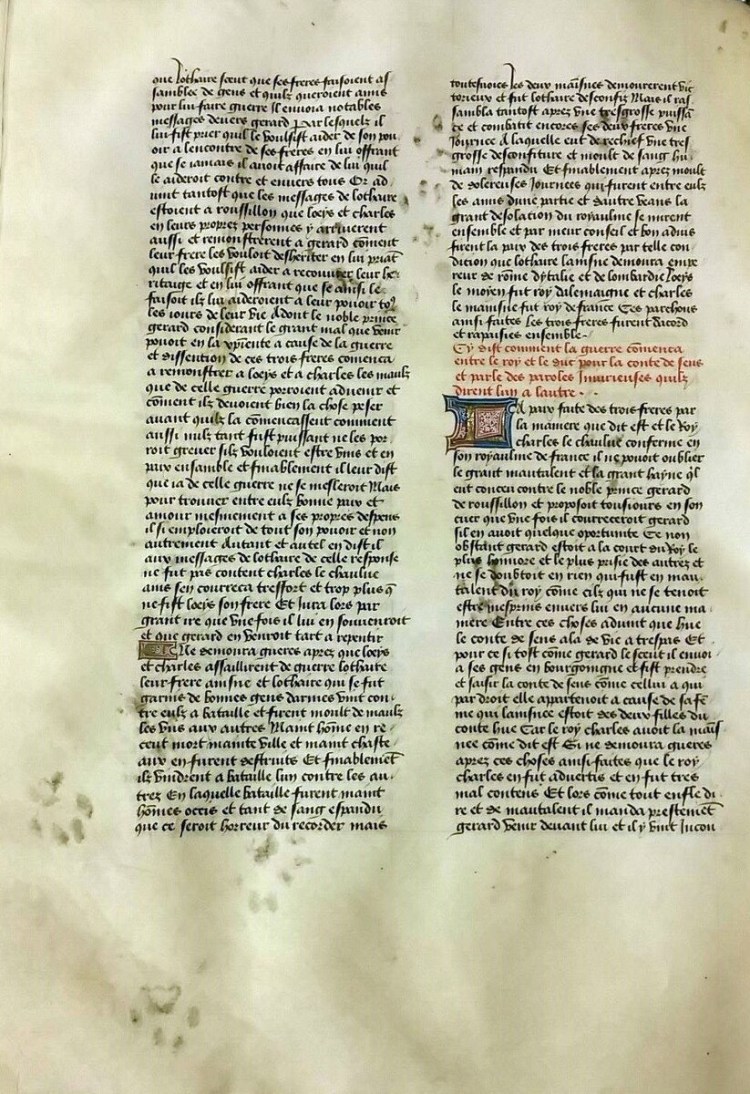 que lothaire sceut que ses freres faisoient as
samblee de gens et quilz queroient amis
pour lui faire guerre Il envoia notables
messages devers gerard par lesquelz il
lui fist prier quil le voulsist aider de son pou
oir a lencontre de ses freres en lui offrant
que se iamais il avoit affaire de lui quil
le aideroit contre et envers tous Or ad
vint tantost que les messages de lothaire
estoient a roussillon que loeys et charles
en leurs propres personnes y arriverent
aussi et remonstrerent a gerard cōment
leur frere les vouloit desheriter en lui priāt
quil les voulsist aider a recouvrer leur he
ritaige et en lui offrant que se ainsi le
faisoit ilz lui aideroient a leur povoir toꝰ
les iours de leur vie Adont le noble prince
gerard considerant le grant mal que venir
pouoit en la xp̄iente a cause de la guerre
et dissention de ces trois freres comenca
a remonstrer a loeys et a charles les maulx
que de celle guerre porroient advenir et
cōment ilz devoient bien la chose peser
avant quilz la cōmencassent comment
aussi nulz tant fust puissant ne les por
roit grever silz vouloient estre unis et en
paix ensamble et finablement il leur dist
que ia de celle guerre ne se mesleroit Mais
pour trouver entre eulz bonne paix et
amour mesmement a ses propres despens
il si emploieroit de tout son povoir et non
autrement Autant et autel en dist il
aux messages de lothaire de celle response
ne fut pas content charles le chaulve
ains sen courrca tresfort et trop plus q̄
ne fist loeys son frere Et iura lors par
grant ire que une fois il lui en souvenroit
et que gerard en venroit tart a repentir
Il ne demoura gueres apres que loeys
et charles assaillirent de guerre lothaire
leur frere aisne et lothaire qui se fut
garnis de bonnes gens darmes vint con
tre eulz a bataille et firent moult de maulz
les uns aux autres Maint hōme en re
ceut mort mainte ville et maint chaste
aux en furent destruits Et finablemēt
ilz vindrent a bataille lun contre les au
trez En laquelle bataille furent maint
hōmes occis et tant de sang espandu
que ce seroit horreur du recorder mais
toutesvoies les deux mais̄nes demourerent vic
torieux et fut lothaire desconfiz Mais il ras
sambla tantost apres une tresgrosse puissā
ce et combatit encores ses deux freres une
Journee a laquelle eut de rechief une tres
grosse desconfiture et moult de sang hu
main respandu Et finablement apres moult
de dolereuses Journees qui furent entre eulz
les amis dune partie et dautre veans la
grant desolation du royaulme se mirent
ensemble et par meur conseil et bon advis
firent la paix des trois freres par telle con
dicion que lothaire laisne demoura empe
reur de rōme dytalie et de lombardie Loeys
le moyen fut roy dalemaigne et charles
le mainsne fut roy de france Ces parchons
ainsi faites les trois freres furent dacord
et rapaisies ensemble
Cy dist comment la guerre cōmenca
entre le roy et le duc pour la conte de sens
et parle des paroles Iniurieuses quilz
dirent lun a lautre
La paix faite des trois freres par
la maniere que dit est et le Roy
charles le chaulve conferme en
son royaulme de france il ne pouoit oublier
le grant mautalent et la grant hayne ql̄
eut conceu contre le noble prince gerard
de roussillon et proposoit tousiours en son
cuer que une fois il courreceroit gerard
sil en avoit quelque oportunite Ce non
obstant gerard estoit a la court du Roy le
plus honnore et le plus prisie des autrez et
ne se doubtoit en rien qui fust en mau
talent du roy cōme cilz qui ne se tenoit
estre mesprins envers lui en aucune ma
niere Entre ces choses advint que hue
le conte de sens ala de vie a trespas Et
pour ce si tost cōme gerard le sceut il envoi
a ses gens en bourgoingne et fist prendre
et saisir la conte de sens cōme cellui a qui
par droit elle apartenoit a cause de sa fē
me qui lainsnee estoit des deux filles du
conte hue Car le roy charles avoit la mais̄
nee cōme dit est Si ne demoura gueres
apres ces choses ainsi faites que le roy
charles en fut advertis et en fut tres
mal contens Et lors cōme tout enfle di
re et de mautalent il manda prestemēt
gerard venir devant lui et il y vint Incon